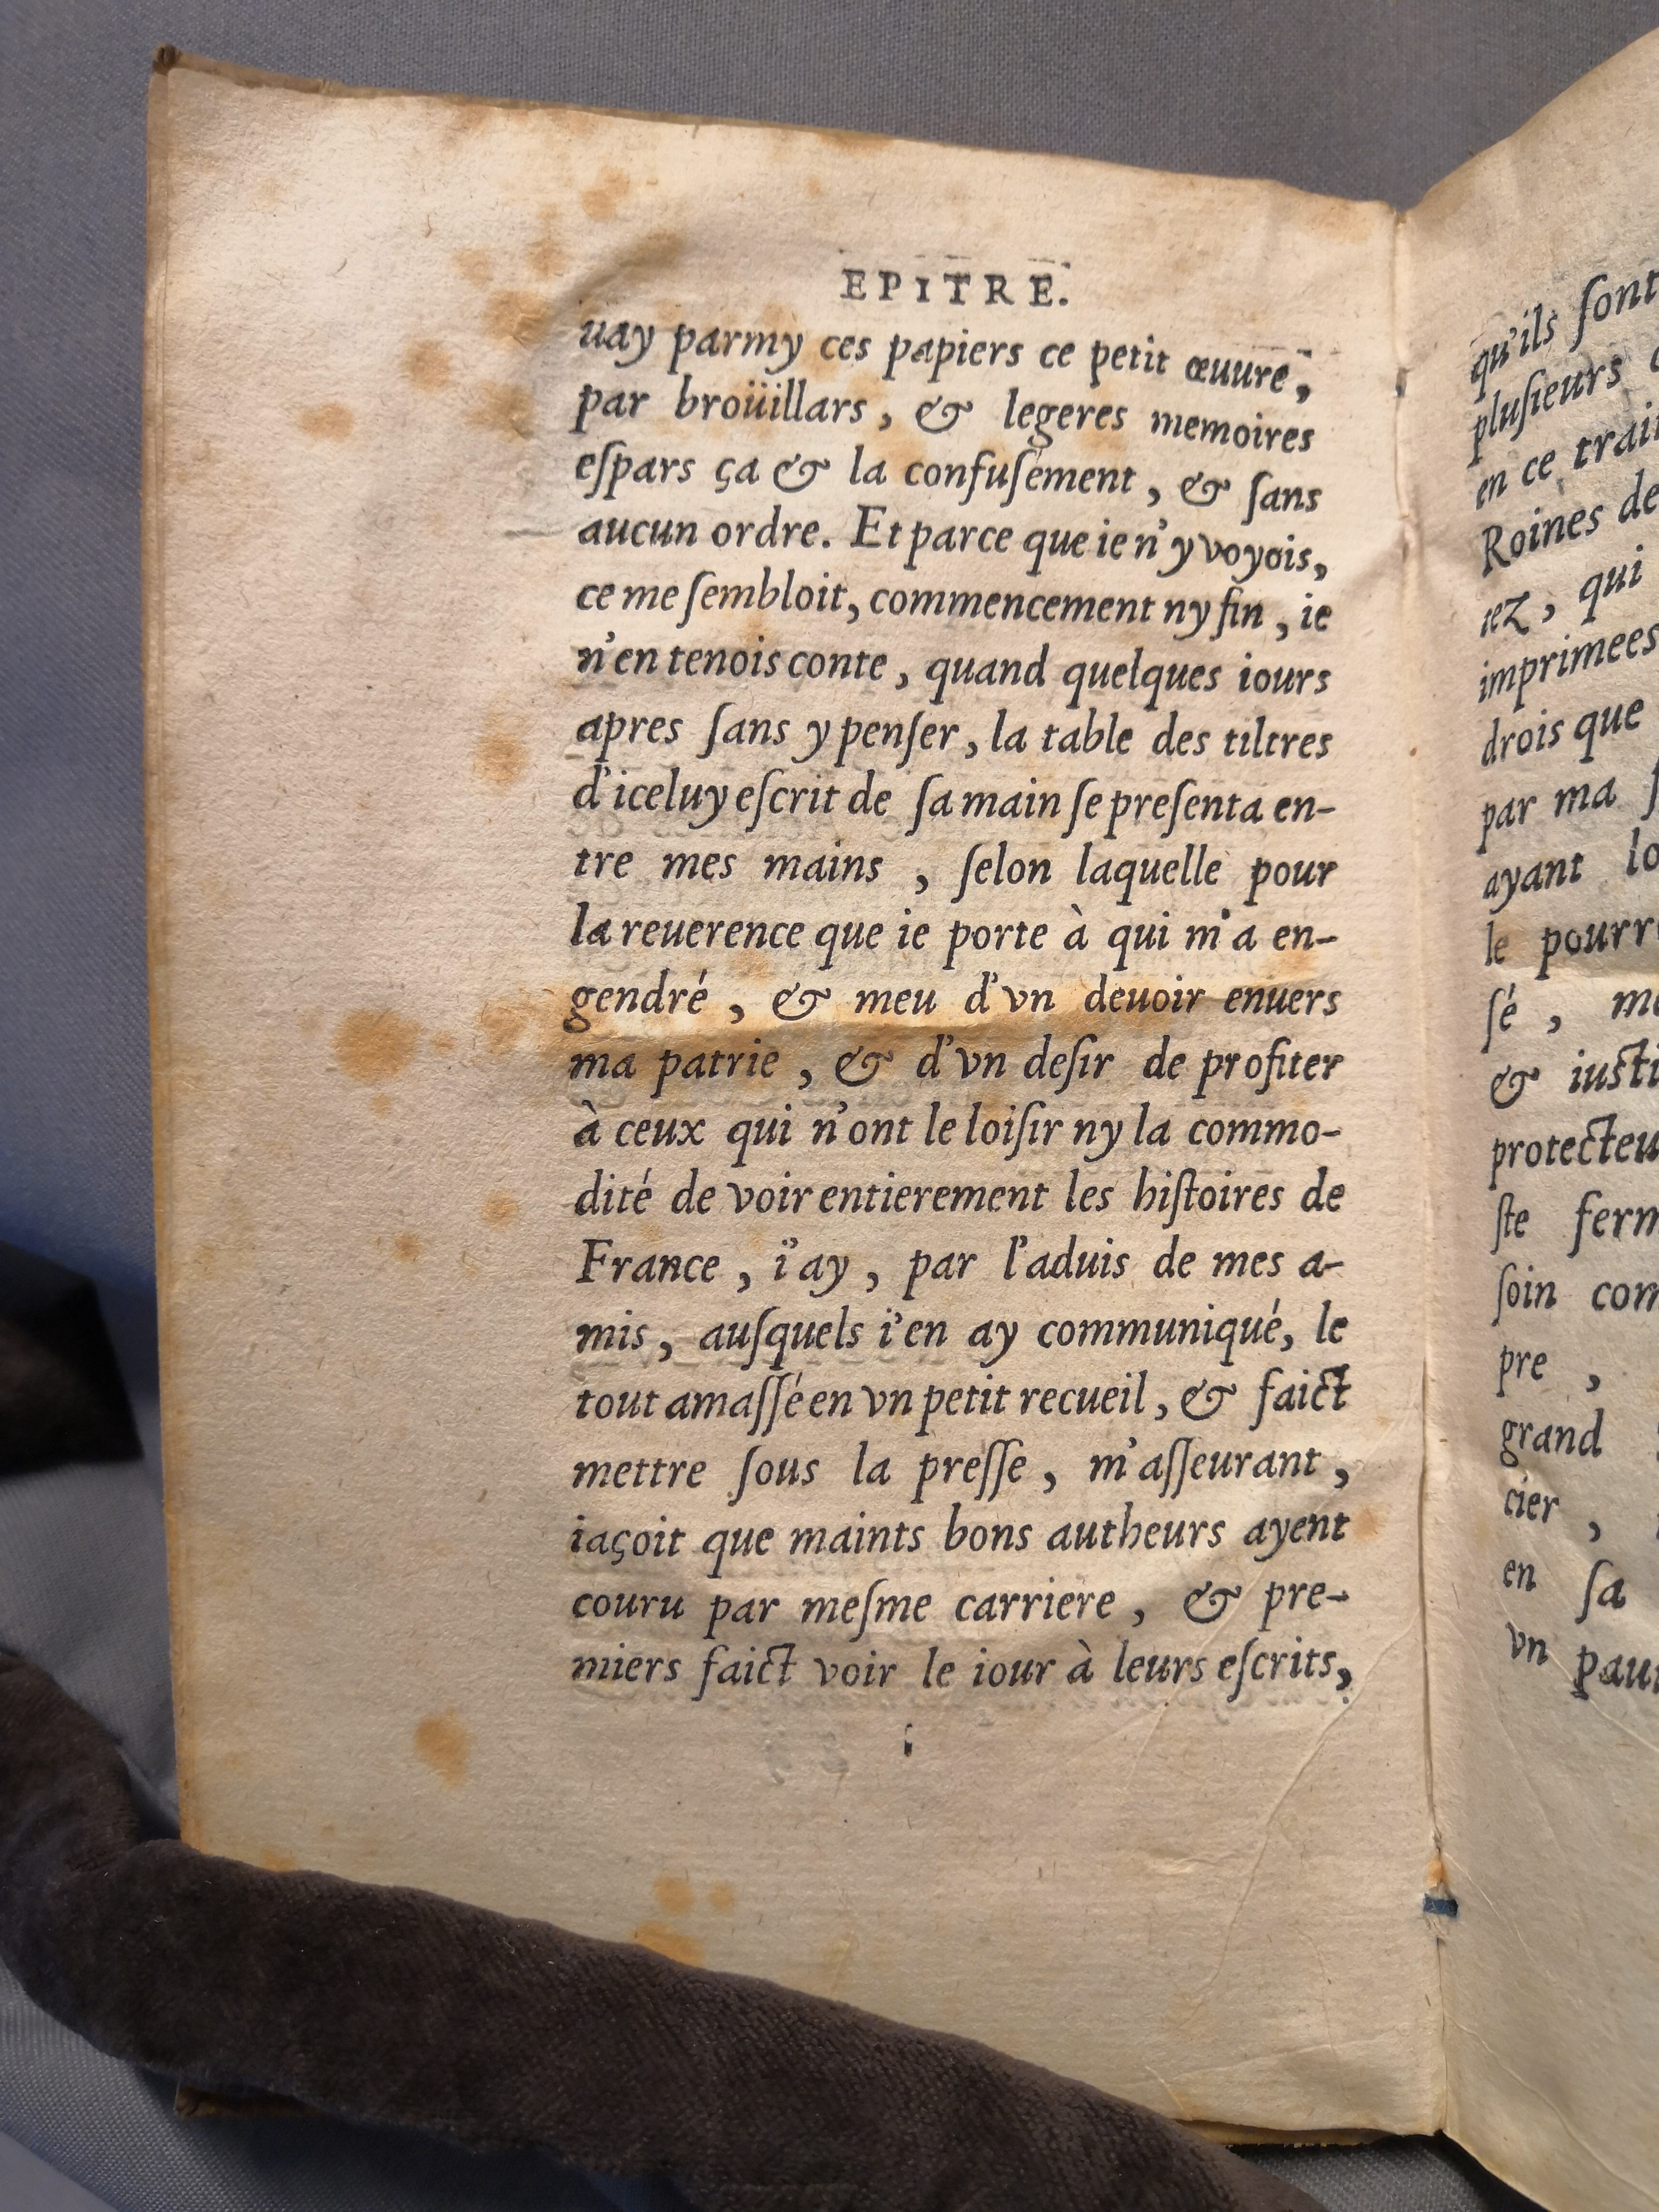 EPITRE.
uay parmy ces papiers ce petit œuure,
par broüillars, & legeres memoires
eſpars ça & la confuſement, & ſans
aucun ordre. Et parce que ie n'y voyois,
ce me ſembloit, commencement ny fin, ie
n'en tenois conte, quand quelques iours
apres ſans y penſer, la table des tiltres
d'iceluy eſcrit de ſa main ſe preſenta en-
tre mes mains, ſelon laquelle pour
la reuerence que ie porte à qui m'a en-
gendré, & meu d'vn deuoir enuers
ma patrie, & d'vn deſir de profiter
à ceux qui n'ont le loiſir ny la commo-
dité de voir entierement les hiſtoires de
France, i'ay, par l'aduis de mes a-
mis, auſquels i'en ay communiqué, le
tout amaſſé en vn petit recueil, & faict
mettre ſous la preſſe, m'aſſeurant,
iaçoit que maints bons autheurs ayent
couru par meſme carriere, & pre-
miers faict voir le iour à leurs eſcrits,
qu'ils ſont
pluſieurs
en ce
Roines de
iez, qui
imprimees
drois que
par ma
ayant
le
ſé,
&
ſte
ſoin
pre,
grand
cier,
en ſa
vn